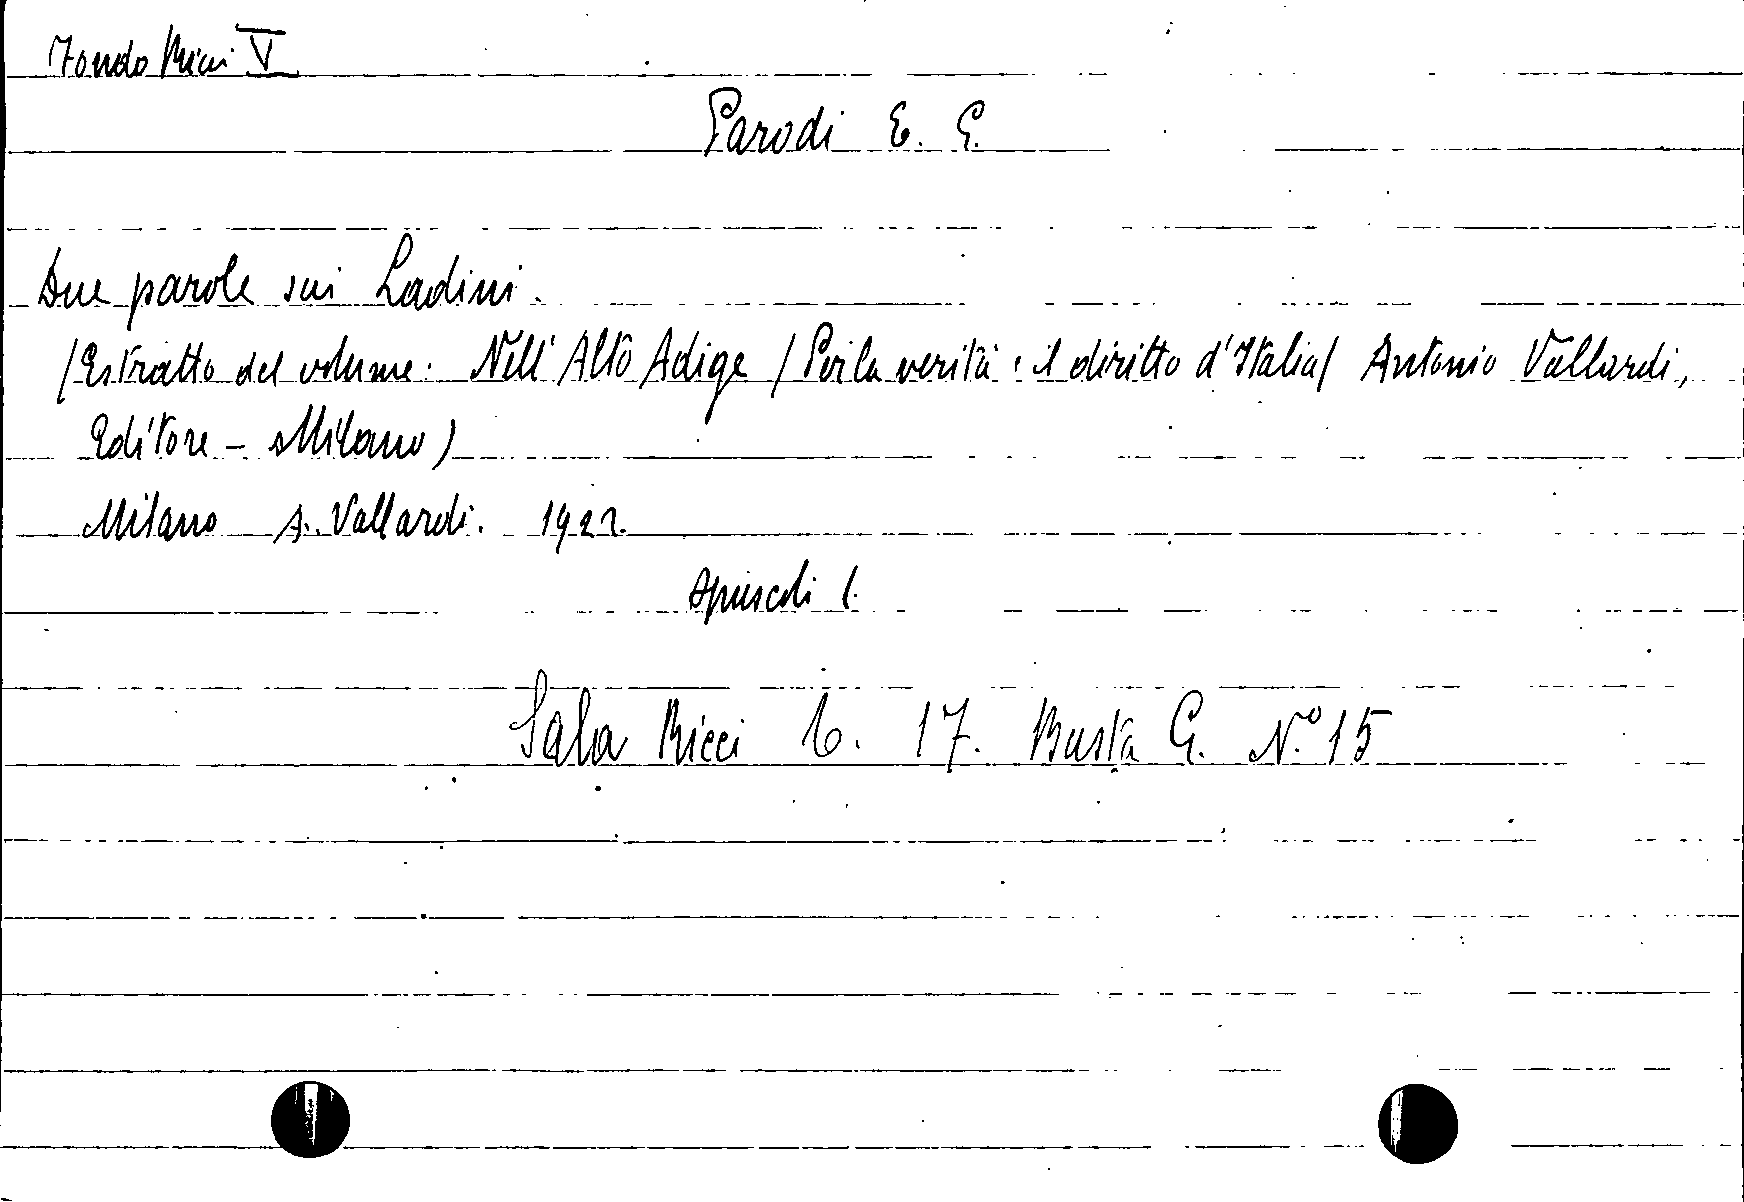 Fondo Ricci V
Parodi E. G.
Due parole sui Ladini.
(Estratto del volume: Nell'Alto Adige / Per la verità e il diritto d'Italia / Antonio Vallardi,
Editore - Milano)
Milano A. Vallardi. 1922.
Opuscoli 1.
Sala Ricci C. 17. Busta G. N.º 15